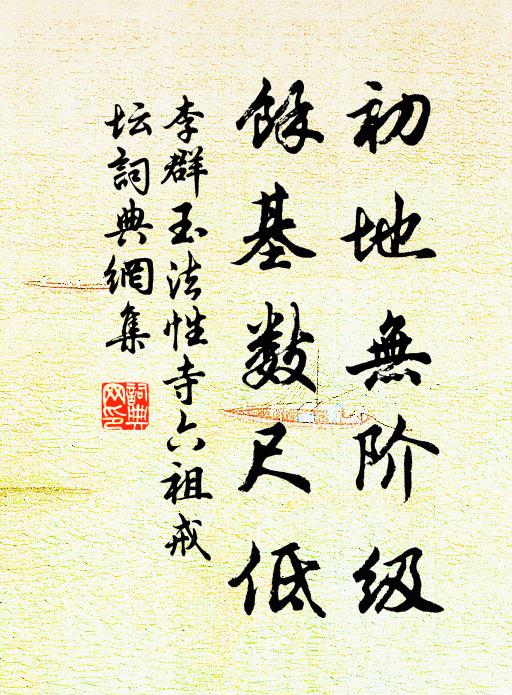 初地無阶级
餘基数尺低
李群玉法性寺六祖戒
坛詞典網集
詞典網印